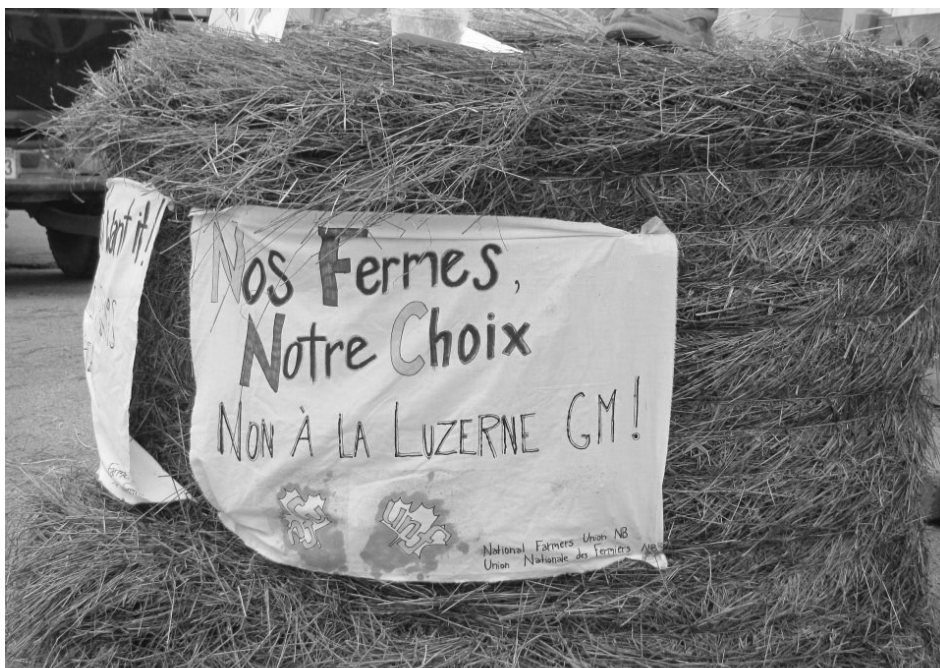 Want it!
Nos Fermes,
Notre Choix
Non À LA LUZERNE GM!
nfu
unf
National Farmers Union NB
Union Nationale des Fermiers
3